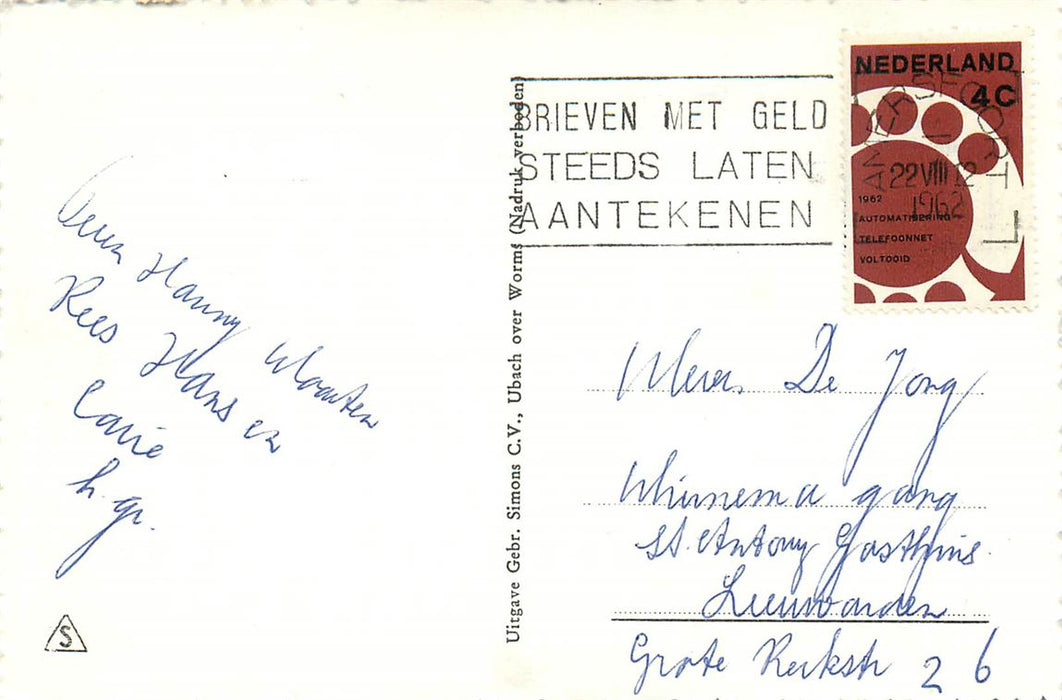 BRIEVEN MET GELD
STEEDS LATEN
AANTEKENEN
NEDERLAND
4C
AMERSFOORT
22 VIII 12
1962
1962
AUTOMATISERING
TELEFOONNET
VOLTOOID
Hanny
Kees Hans en
h. gr.
S
Uitgave Gebr. Simons C.V., Ubach over Worms (Nadruk verboden)
De Jong
gang
St. Antony Gasthuis
Leeuwarden
Grote Kerkstr 26